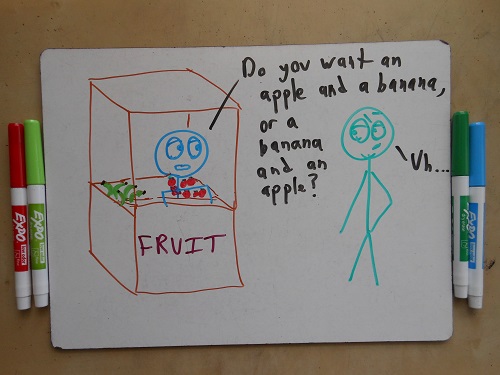 Do you wait an
apple and a banana,
or a
banana
and an
apple?
Uh...
FRUIT
EXPO
EXPO
EXPO
EXPO